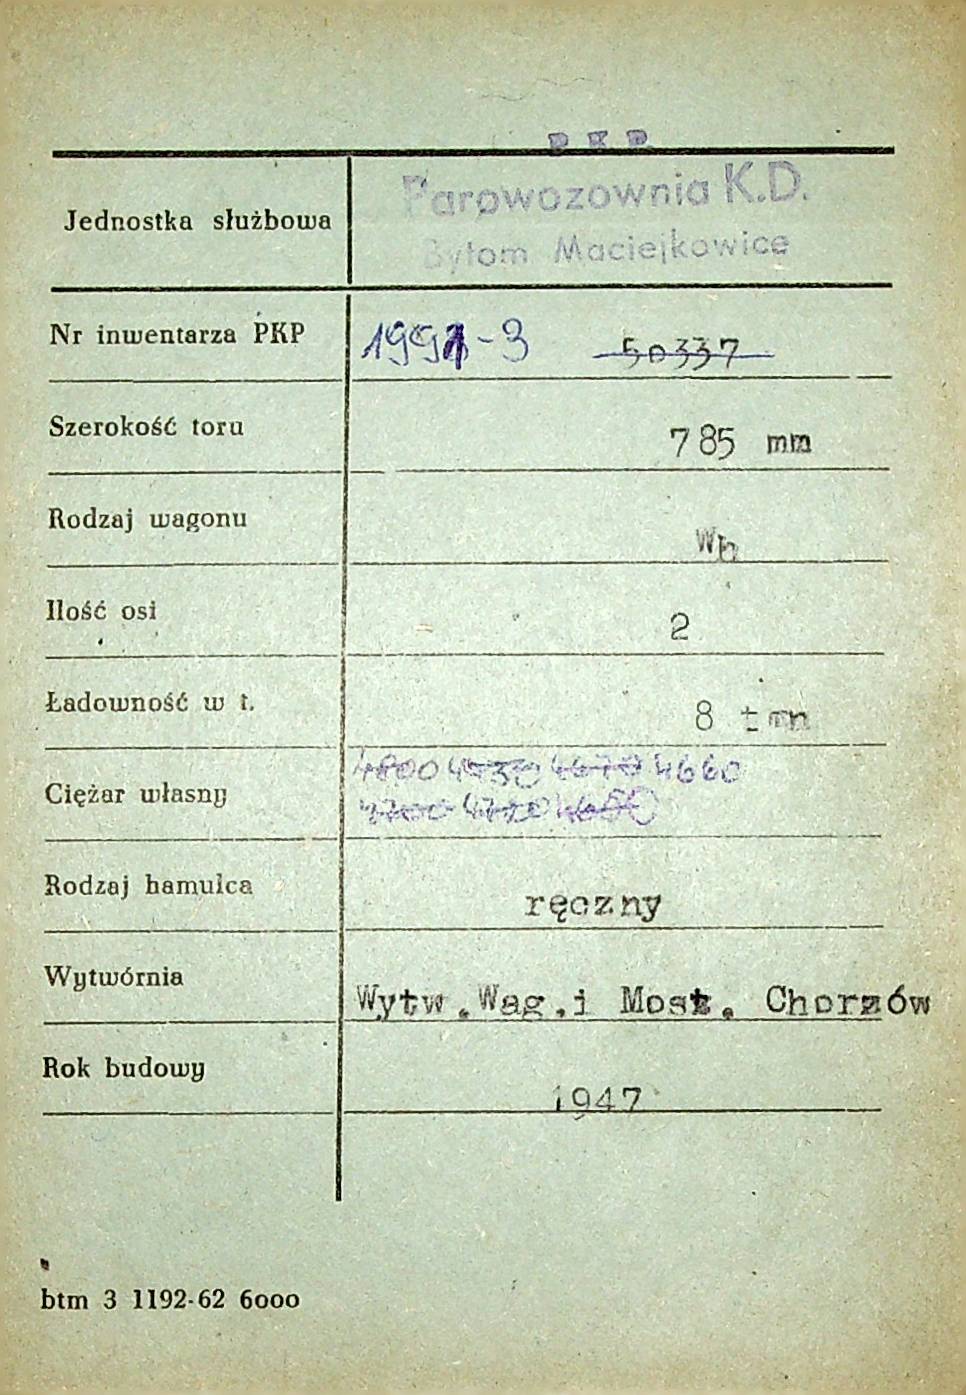 P K P
Jednostka służbowa Parowozownia K.D.
Bytom Maciejkowice
Nr inwentarza PKP 1991-3 50337
Szerokość toru 785 mm
Rodzaj wagonu Wh
Ilość osi 2
Ładowność w t. 8 ton
4800 4730 4670 4660
Ciężar własny
4700 4720 4650
Rodzaj hamulca ręczny
Wytwórnia Wytw.Wag.i Most. Chorzów
Rok budowy 1947
btm 3 1192-62 6000